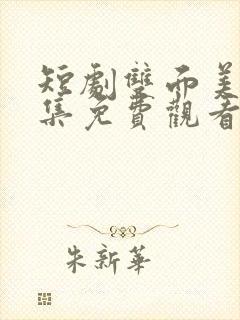 短劇雙面美
集免費觀看
朱新華